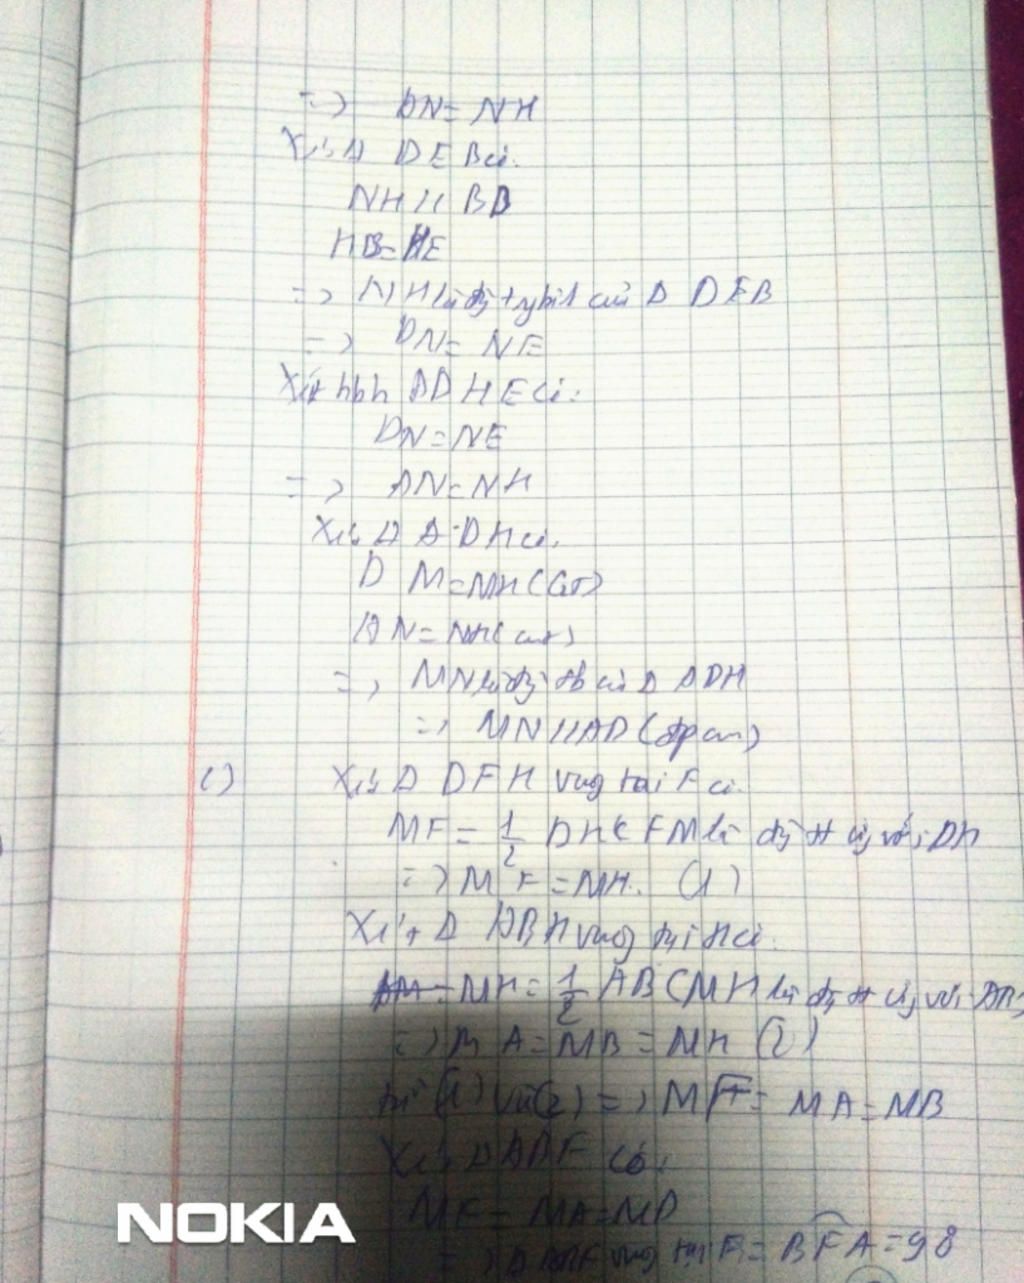 => AN = NH
Xét Δ DEB có:
NH // BD
HB = HE
=> NH là đg t bình của Δ DEB
=> DN = NE
Xét hbh ADHE có:
DN = NE
=> AN = NH
Xét Δ ADH có:
DM = MH (Gt)
AN = NH (cmt)
=> MN là đg tb của Δ ADH
=> MN // AD (đpcm)
c) Xét Δ DFH vuông tại F có:
MF = 1/2 DH ( FM là đg tt ứg với DH
=> MF = MH. (1)
Xét Δ ABH vuông tại H có:
MH = 1/2 AB ( MH là đg tt ứg với AB)
=> MA = MB = MH (2)
từ (1) và (2) => MF = MA = MB
Xét Δ ABF có:
MF = MA = MB
=> Δ ABF vuông tại F = BFA = 90
NOKIA